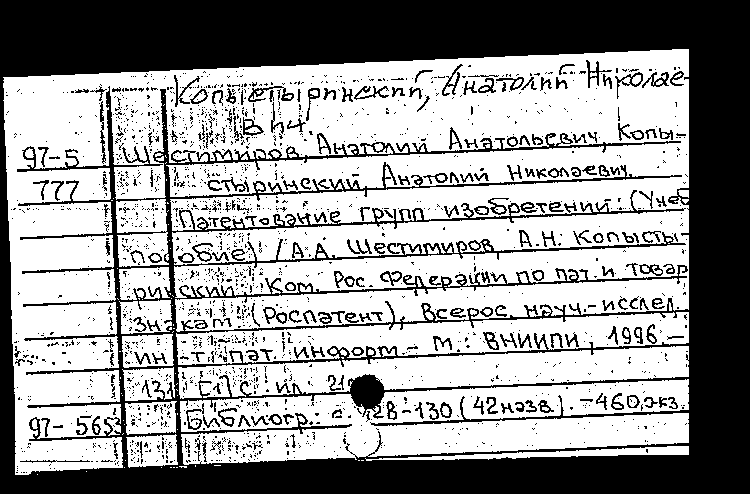 Копыстыринский, Анатолий Николае-
вич.
97-5 Шестимиров, Анатолий Анатольевич, Копы-
777 стыринский, Анатолий Николаевич.
Патентование групп изобретений: (Учеб
пособие) / А.А. Шестимиров, А.Н. Копысты-
ринский; Ком. Рос. Федерации по пат. и товар
знакам (Роспатент), Всерос. науч.-исслед.
ин-т. пат. информ. - М.: ВНИИПИ, 1996. -
131 [1] с. ил.;
97-5653 Библиогр.: с. 128-130 (42 назв). - 460 экз.